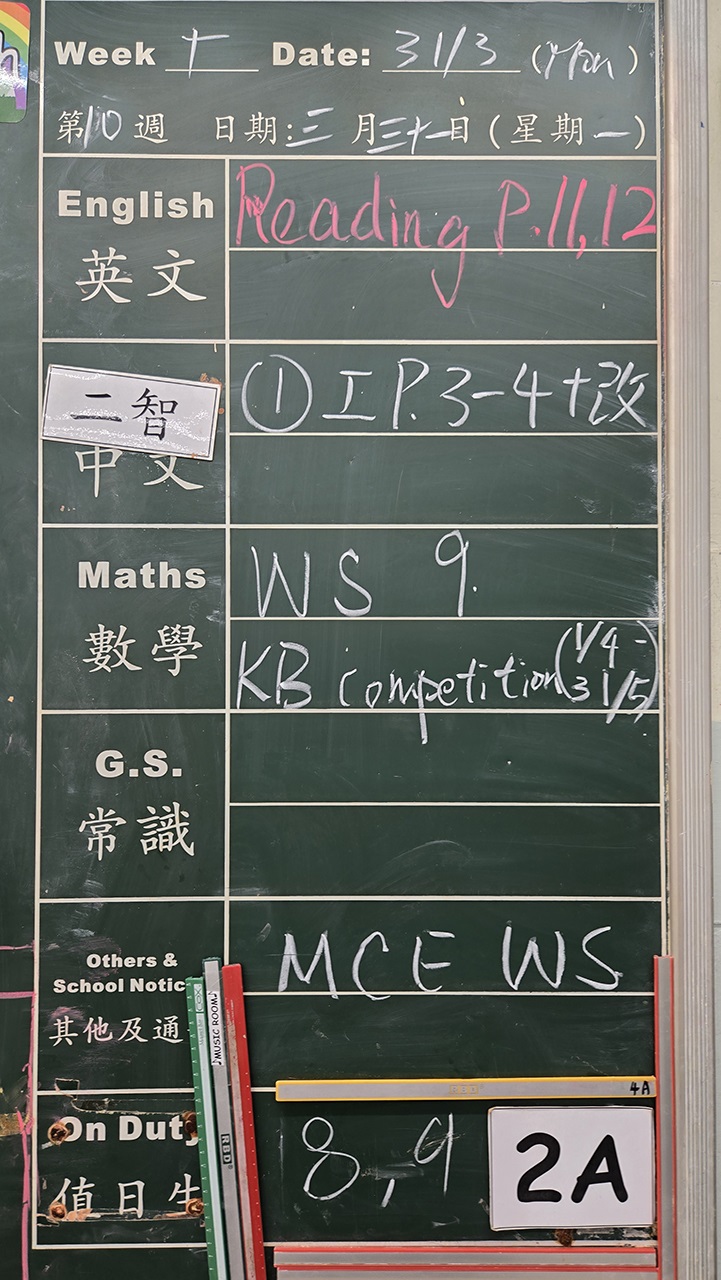 Week 十 Date: 31/3 (Mon)
第10週 日期:三月三十一日(星期一)
English Reading P.11,12
英文
二智 ①工P.3-4+改
中文
Maths WS 9.
數學 KB competition(1/4-31/5)
G.S.
常識
Others & MCE WS
School Notic
其他及通
MUSIC ROOM
RBD
4A
On Duty 8,9 2A
值日生